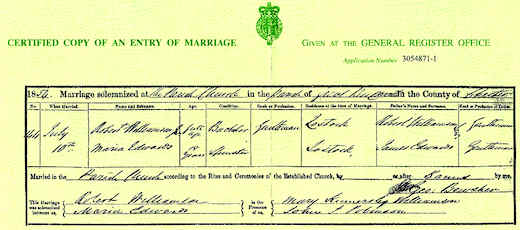 CERTIFIED COPY OF AN ENTRY OF MARRIAGE
GIVEN AT THE GENERAL REGISTER OFFICE
Application Number 3054871-1
18 Marriage solemnized at the Parish Church in the Parish of in the County of
No. When Married. Name and Surname. Age. Condition. Rank or Profession. Residence at the time of Marriage. Father's Name and Surname. Rank or Profession of Father.
July Robert Williamson Bachelor Gentleman Lostock Robert Williamson Gentleman
10th Maria Edwards Spinster Lostock James Edwards Gentleman
Married in the Parish Church according to the Rites and Ceremonies of the Established Church, by or after Banns by me,
Geo: Bowsher
This Marriage was solemnized between us, Robert Williamson Maria Edwards
In the Presence of us, Mary Williamson John